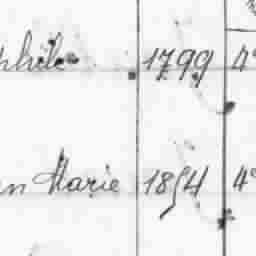 phile 1799 4°
n Marie 1854 4°